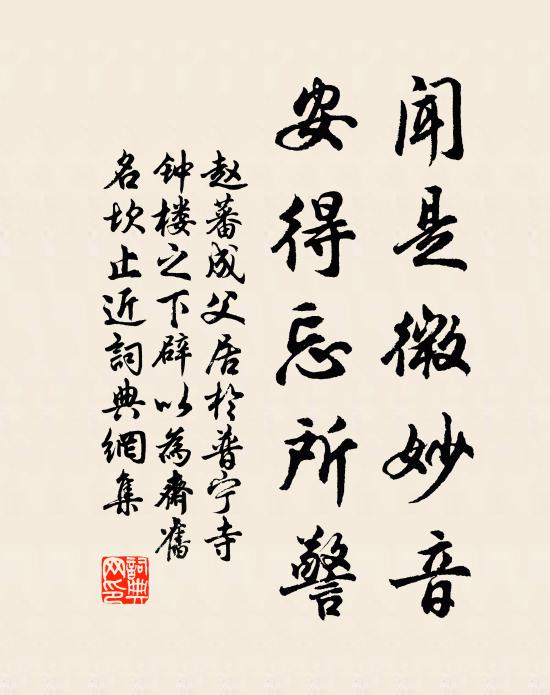 闻是微妙音
安得忘所警
赵蕃成父居於普宁寺
钟楼之下辟以為斋旧
名坎止近詞典網集
詞典
网印